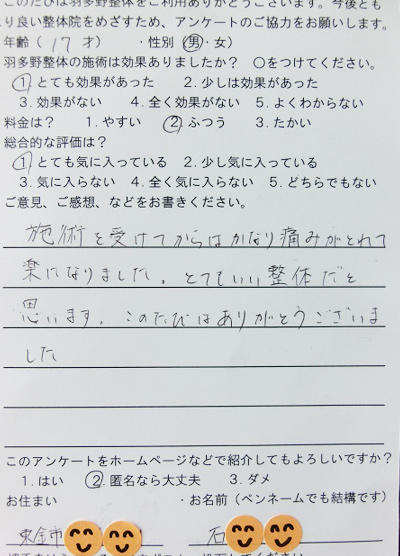 このたびは羽多野整体をご利用ありがとうございます。今後とも
より良い整体院をめざすため、アンケートのご協力をお願いします。
年齢（ 17 才） ・性別（男・女）
羽多野整体の施術は効果ありましたか？ ○をつけてください。
1. とても効果があった 2. 少しは効果があった
3. 効果がない 4. 全く効果がない 5. よくわからない
料金は？ 1. やすい 2. ふつう 3. たかい
総合的な評価は？
1. とても気に入っている 2. 少し気に入っている
3. 気に入らない 4. 全く気に入らない 5. どちらでもない
ご意見、ご感想、などをお書きください。
施術を受けてからはかなり痛みがとれて
楽になりました。とてもいい整体だと
思います。このたびはありがとうございま
した
このアンケートをホームページなどで紹介してもよろしいですか？
1. はい 2. 匿名なら大丈夫 3. ダメ
お住まい ・お名前（ペンネームでも結構です）
東金市 石